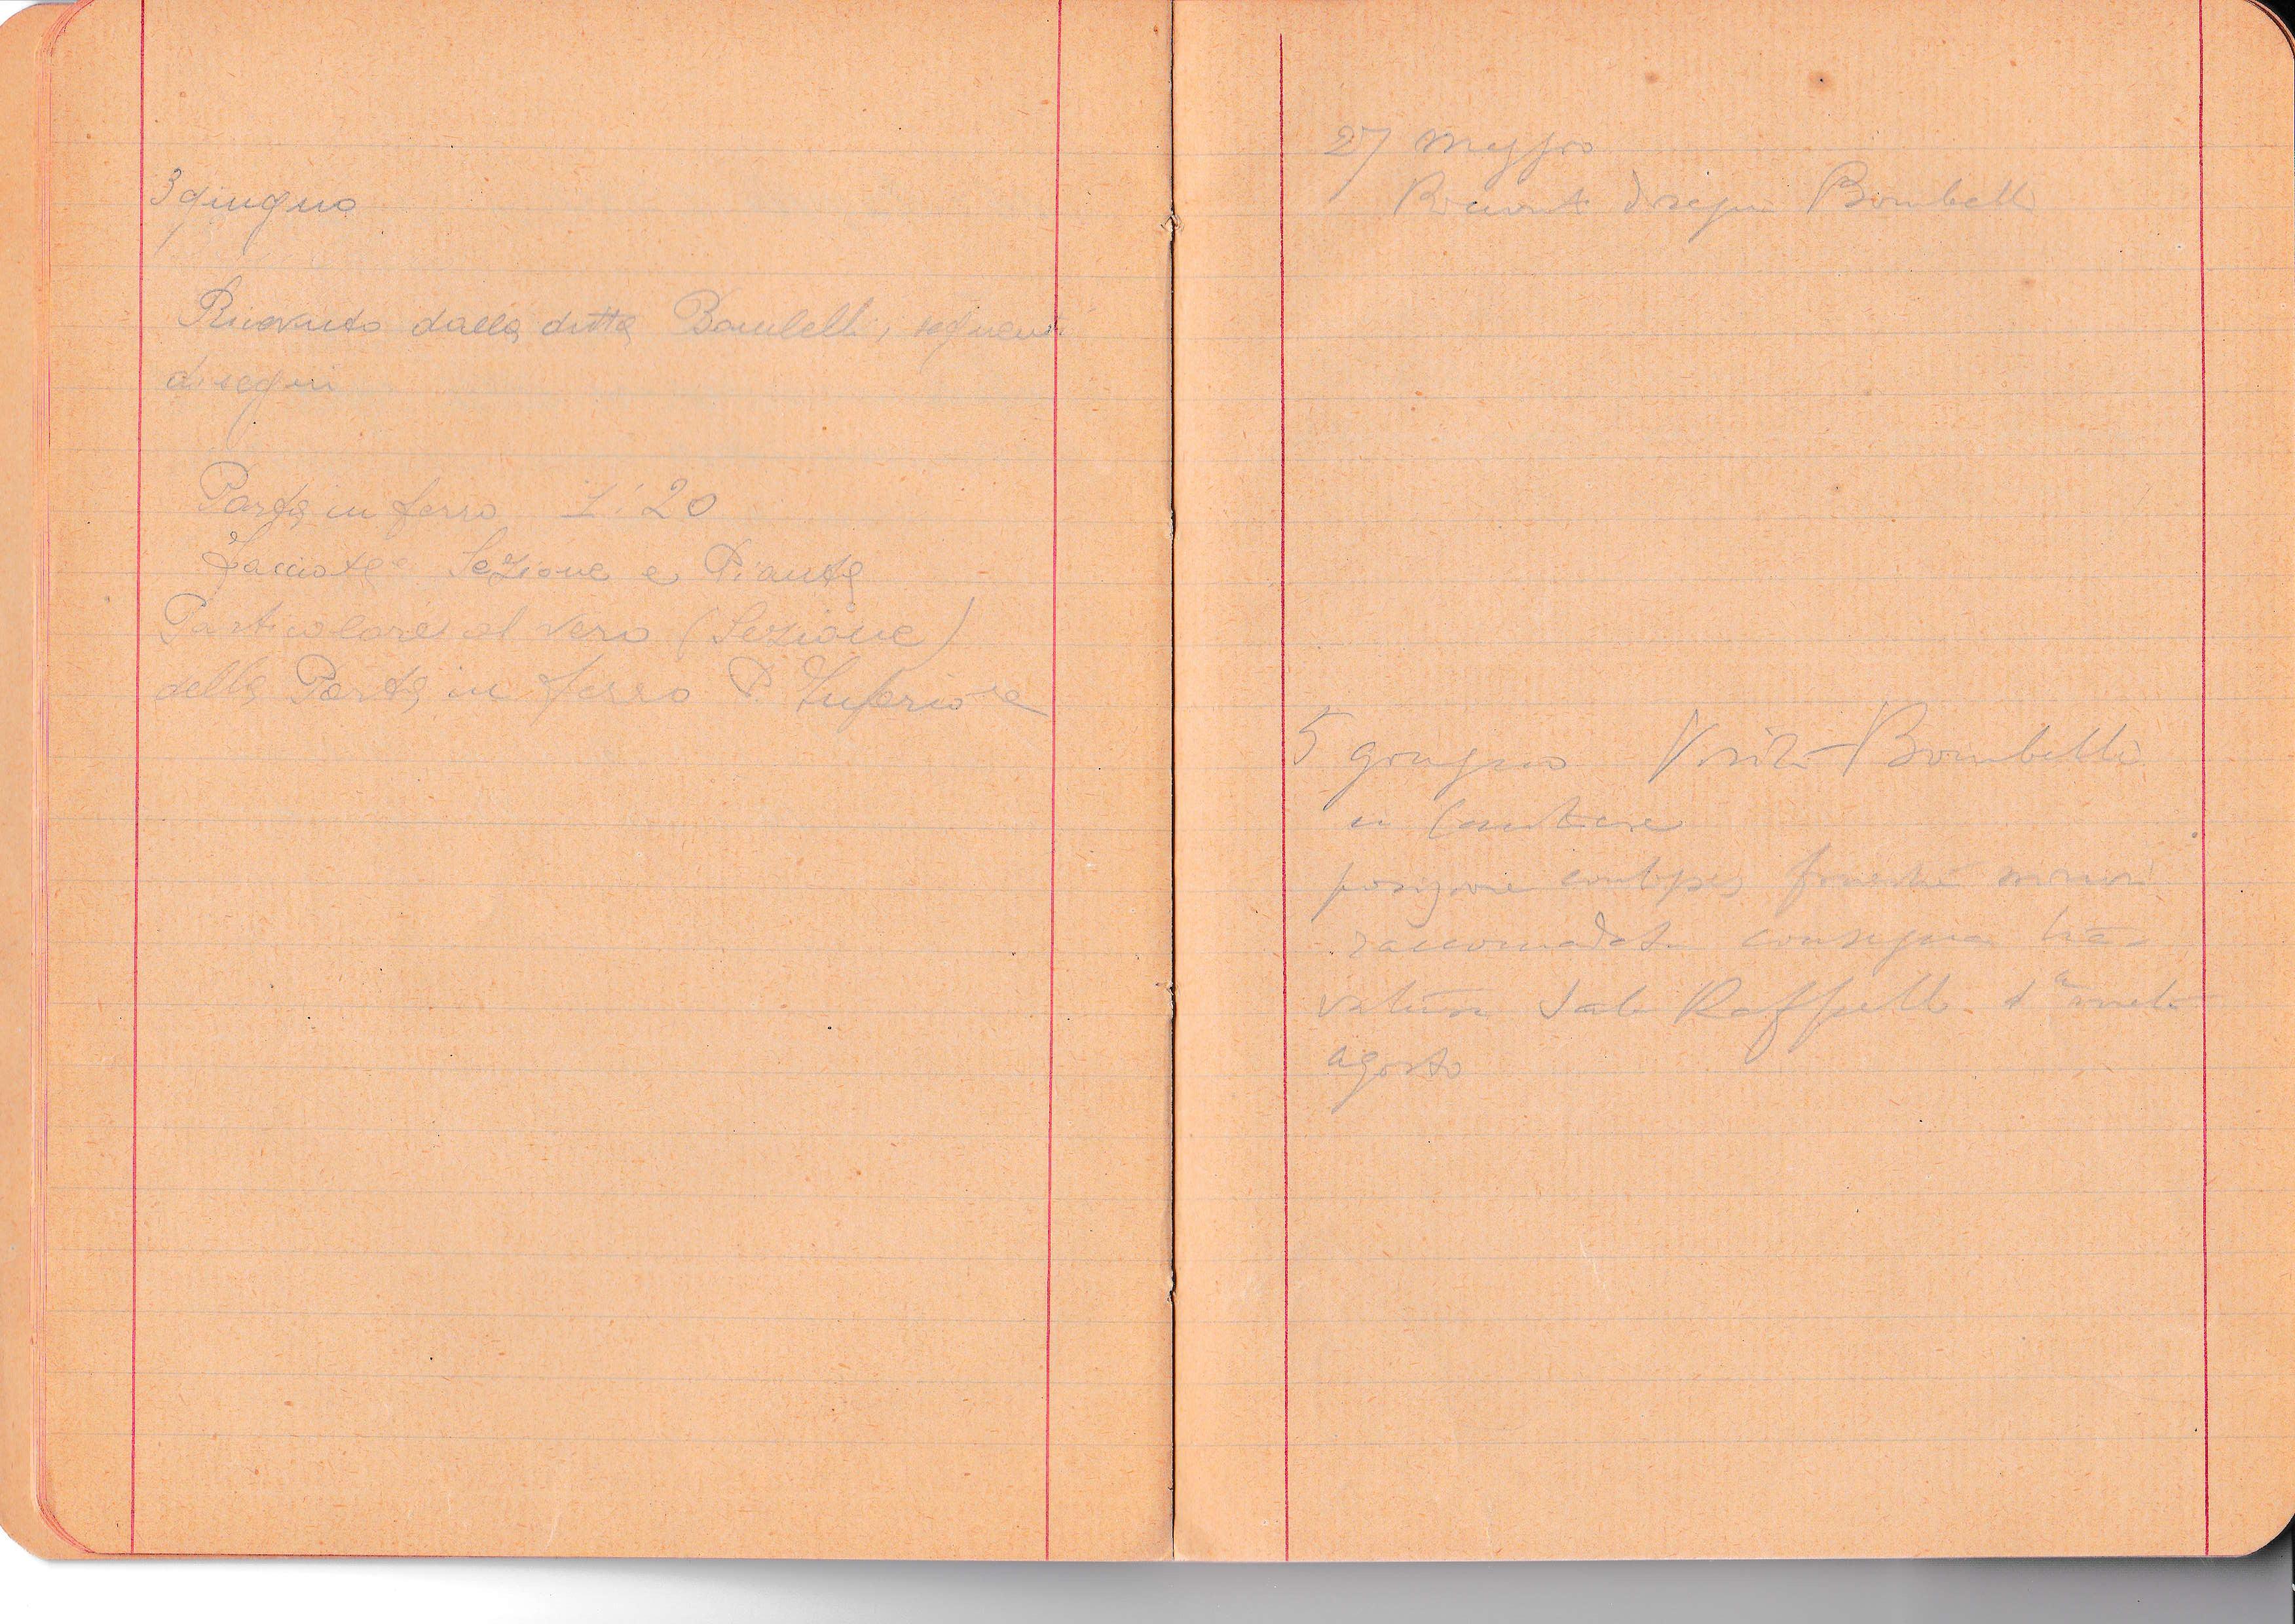 3 giugno
Ricevuto dalla ditta Bombelli, seguenti
disegni
Porta in ferro 1:20
Facciata Sezione e Pianta
Particolare al vero (Sezione)
della Porta in ferro P. Inferiore
27 Maggio
Ricevuti disegni Bombelli
5 giugno Visita Bombelli
in Cantiere
posizione
raccomandata consegna
agosto